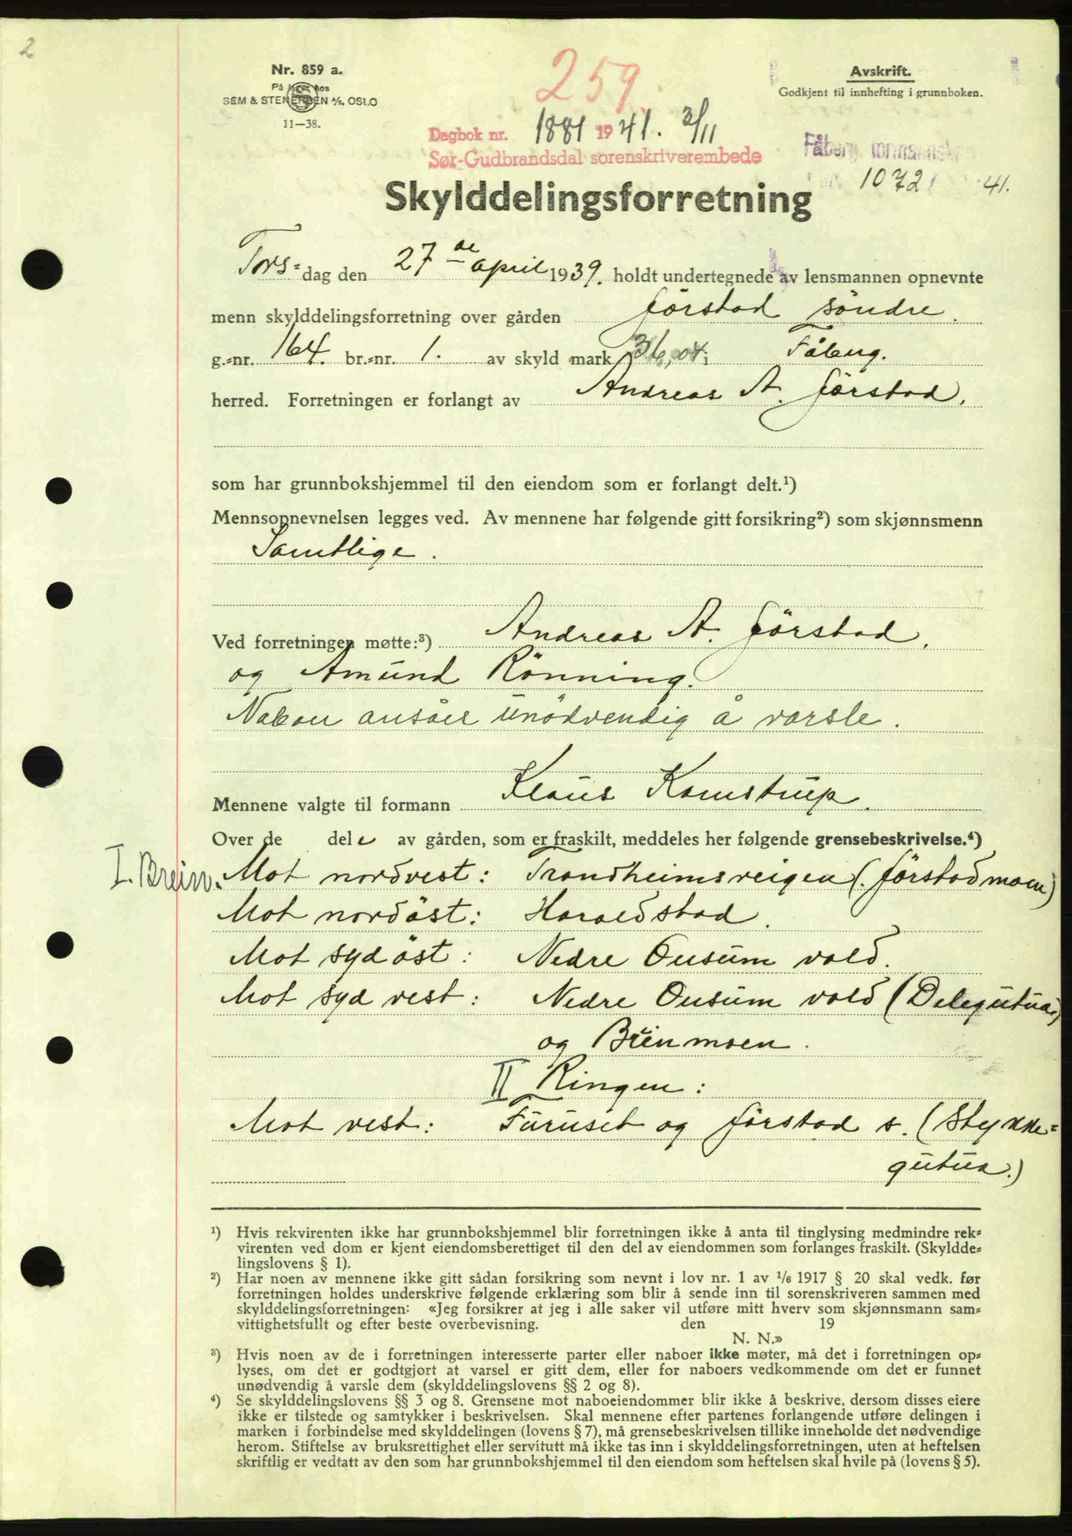 2
Nr. 859 a.
På lager hos
SEM & STENERSEN A/S, OSLO
11—38.
259.
Avskrift.
Godkjent til innhefting i grunnboken.
Dagbok nr. 1881 1941. 3/11
Sør-Gudbrandsdal sorenskriverembede
Fåberg
1072 41.
Skylddelingsforretning
Tors= dag den 27 de april 1939. holdt undertegnede av lensmannen opnevnte
menn skylddelingsforretning over gården Jørstad søndre.
g.=nr. 164. br.=nr. 1. av skyld mark 36,04 i Fåberg.
herred. Forretningen er forlangt av Andreas A. Jørstad.
som har grunnbokshjemmel til den eiendom som er forlangt delt.¹)
Mennsopnevnelsen legges ved. Av mennene har følgende gitt forsikring²) som skjønnsmenn
Samtlige.
Ved forretningen møtte:³) Andreas A. Jörstad.
og Amund Rönning.
Naboer ansåes unödvendig å varsle.
Mennene valgte til formann Klaus Kamstrup.
Over de del e av gården, som er fraskilt, meddeles her følgende grensebeskrivelse.⁴)
I. Brein. Mot nordvest: Trondheimsveigen (Jörstadmoen)
Mot nordöst: Haraldstad.
Mot syd öst: Nedre Ousum vold.
Mot syd vest: Nedre Ousum vold (Delegutua)
og Breinmoen.
II Ringen:
Mot vest: Furuset og Jörstad s. (Stykke=
gutua.)
¹) Hvis rekvirenten ikke har grunnbokshjemmel blir forretningen ikke å anta til tinglysing medmindre rek=
virenten ved dom er kjent eiendomsberettiget til den del av eiendommen som forlanges fraskilt. (Skyldde=
lingslovens § 1).
²) Har noen av mennene ikke gitt sådan forsikring som nevnt i lov nr. 1 av 1/6 1917 § 20 skal vedk. før
forretningen holdes underskrive følgende erklæring som blir å sende inn til sorenskriveren sammen med
skylddelingsforretningen: «Jeg forsikrer at jeg i alle saker vil utføre mitt hverv som skjønnsmann sam=
vittighetsfullt og efter beste overbevisning. den 19
N. N.»
³) Hvis noen av de i forretningen interesserte parter eller naboer ikke møter, må det i forretningen op=
lyses, om det er godtgjort at varsel er gitt dem, eller for naboers vedkommende om det er funnet
unødvendig å varsle dem (skylddelingslovens §§ 2 og 8).
⁴) Se skylddelingslovens §§ 3 og 8. Grensene mot naboeiendommer blir ikke å beskrive, dersom disses eiere
ikke er tilstede og samtykker i beskrivelsen. Skal mennene efter partenes forlangende utføre delingen i
marken i forbindelse med skylddelingen (lovens § 7), må grensebeskrivelsen tillike inneholde det nødvendige
herom. Stiftelse av bruksrettighet eller servitutt må ikke tas inn i skylddelingsforretningen, uten at heftelsen
skriftlig er vedtatt av den som har grunnbokshjemmel til den eiendom som heftelsen skal hvile på (lovens § 5).